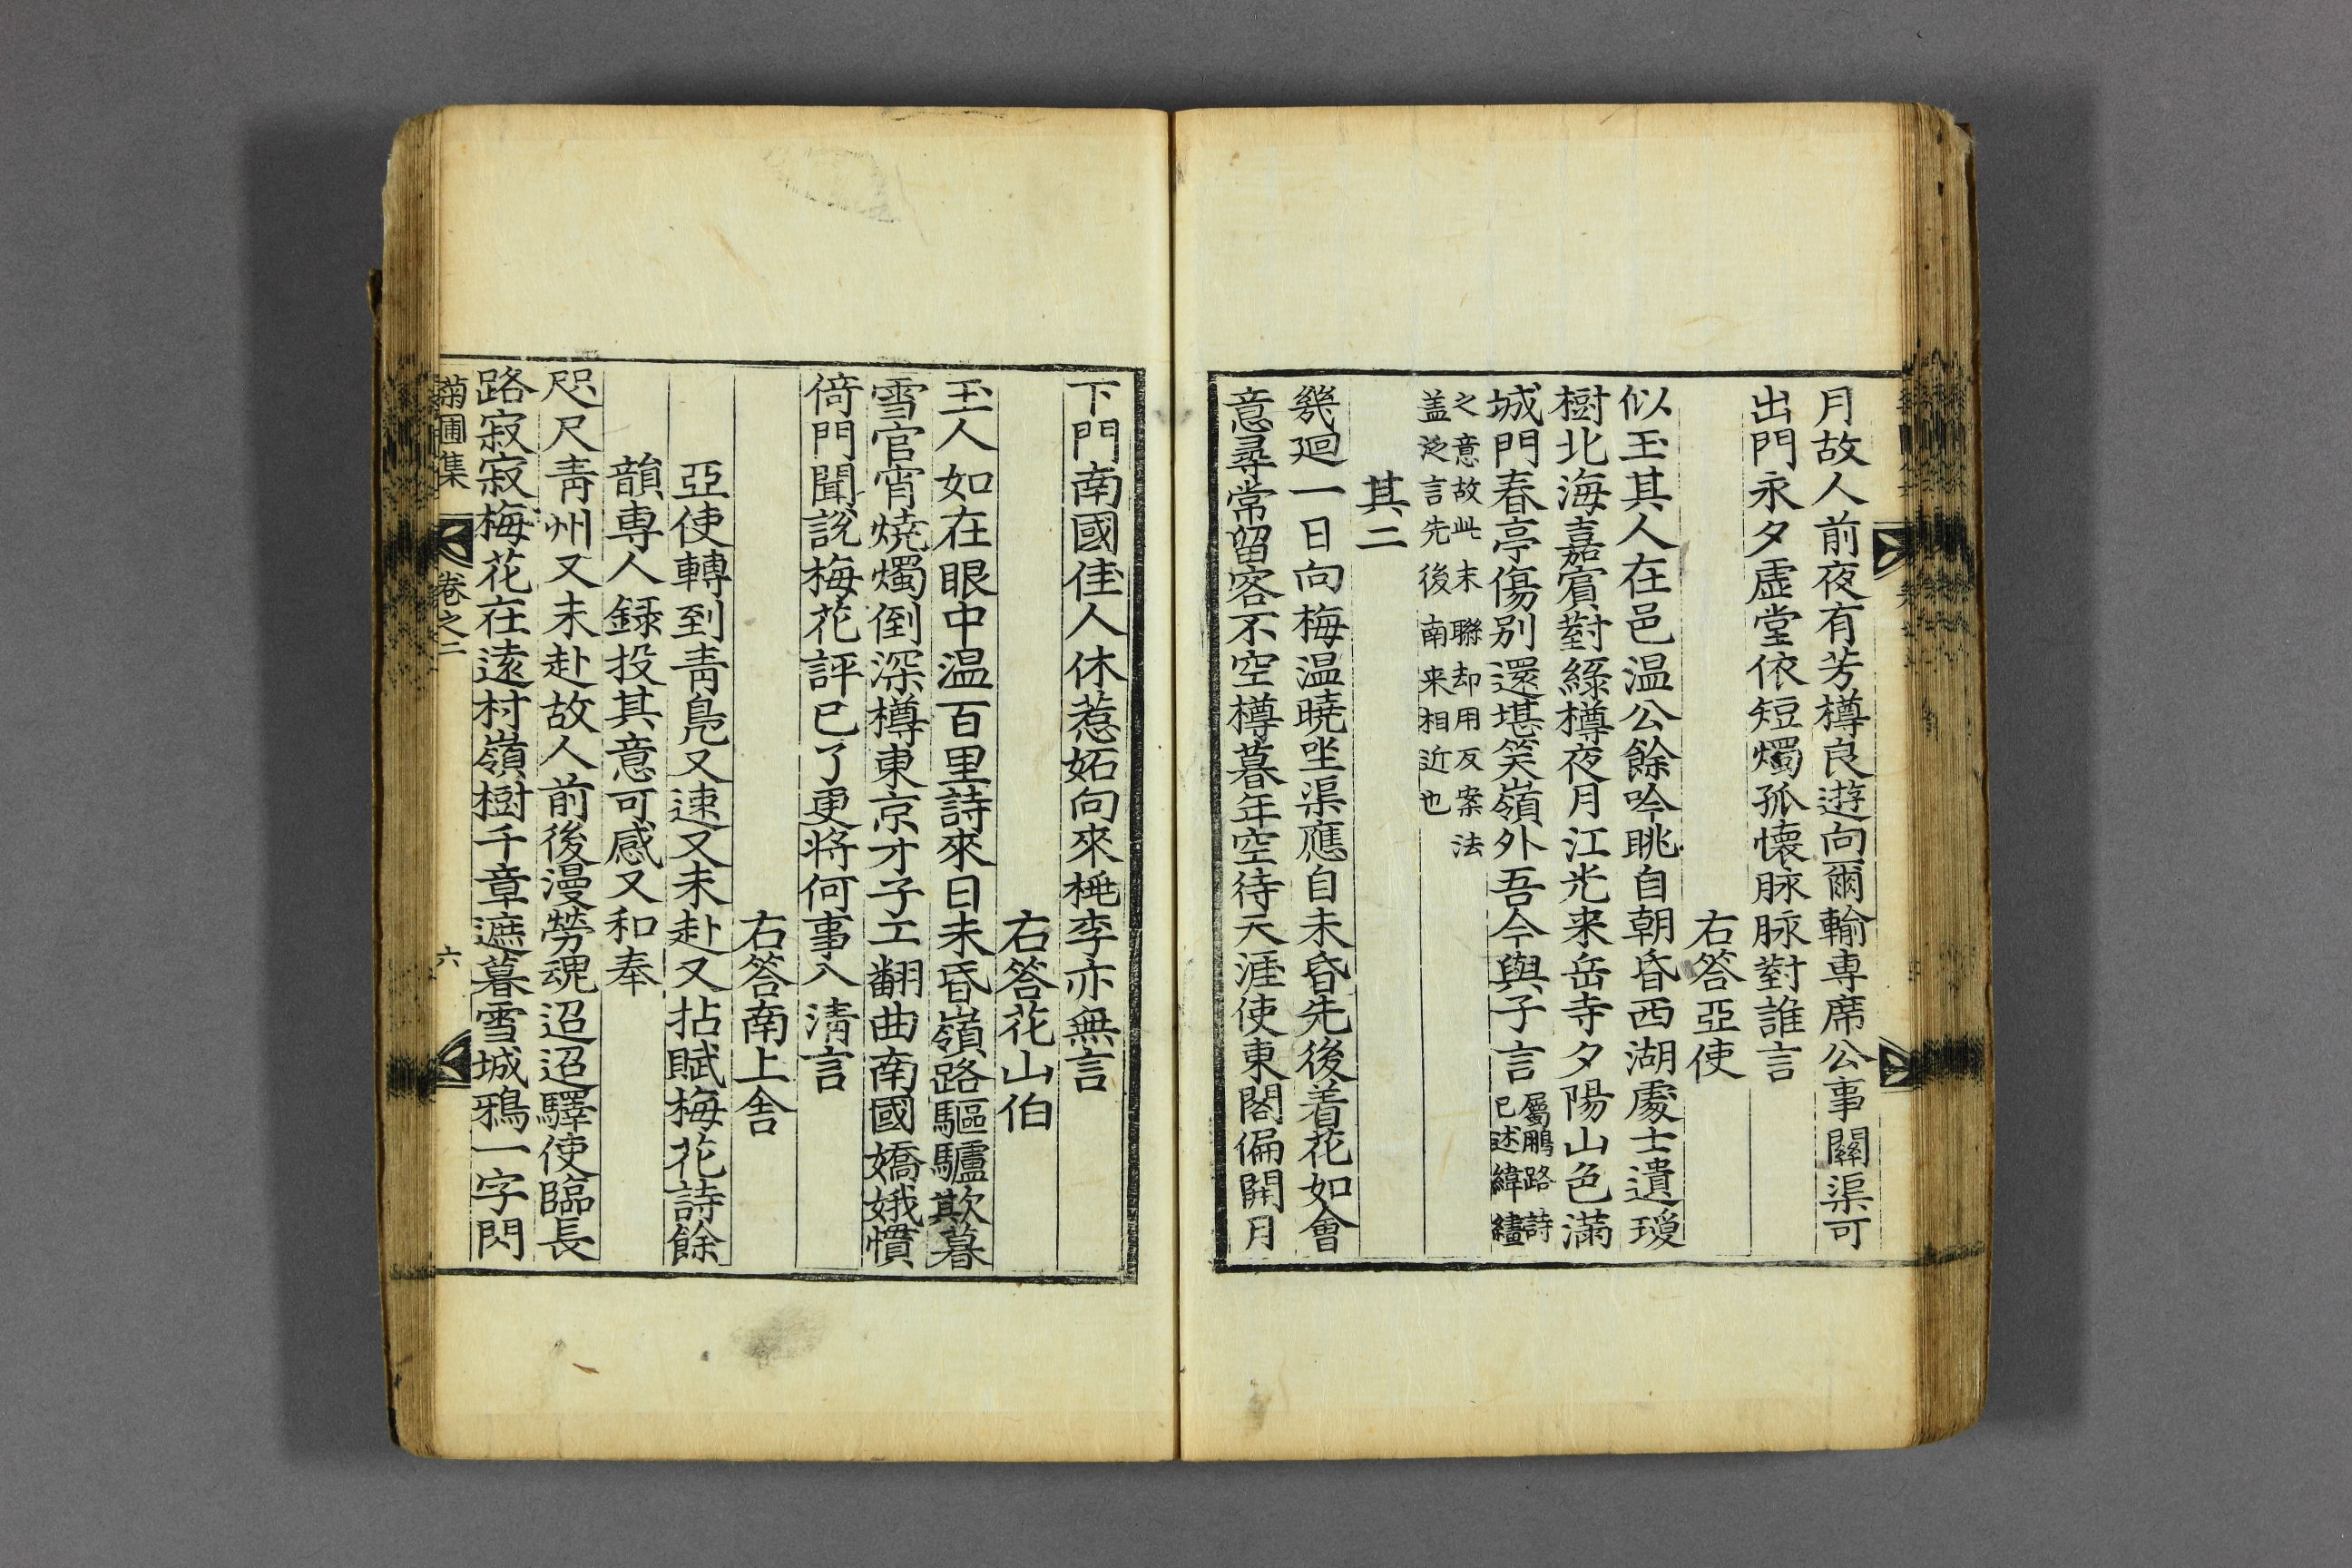 月故人前夜有芳樽良遊向爾輸専席公事關渠可
出門永夕虛堂依短燭孤懷脉脉對誰言
右答亞使
似玉其人在邑溫公餘吟眺自朝昏西湖處士遺璦
樹北海嘉賓對綠樽夜月江光来岳寺夕陽山色滿
城門春亭傷别還堪笑嶺外吾今與子言屬鵬路詩
已述緯繣
之意故此末聯却用反案法
盖泛言先後南来相近也
其二
幾廻一日向梅溫曉坐渠應自未昏先後着花如會
意尋常留客不空樽暮年空待天涯使東閣偏開月
下門南國佳人休惹妬向來桃李亦無言
右答花山伯
玉人如在眼中溫百里詩來日未昏嶺路驅驢欺暮
雪官宵燒燭倒深樽東京才子工翻曲南國嬌娥慣
倚門聞說梅花評已了更將何事入清言
右答南上舍
亞使轉到靑鳧又速又未赴又拈賦梅花詩餘
韻専人録投其意可感又和奉
咫尺靑州又未赴故人前後漫勞魂迢迢驛使臨長
路寂寂梅花在遠村嶺樹千章遮暮雪城鴉一字閃
菊圃集 卷之二 六